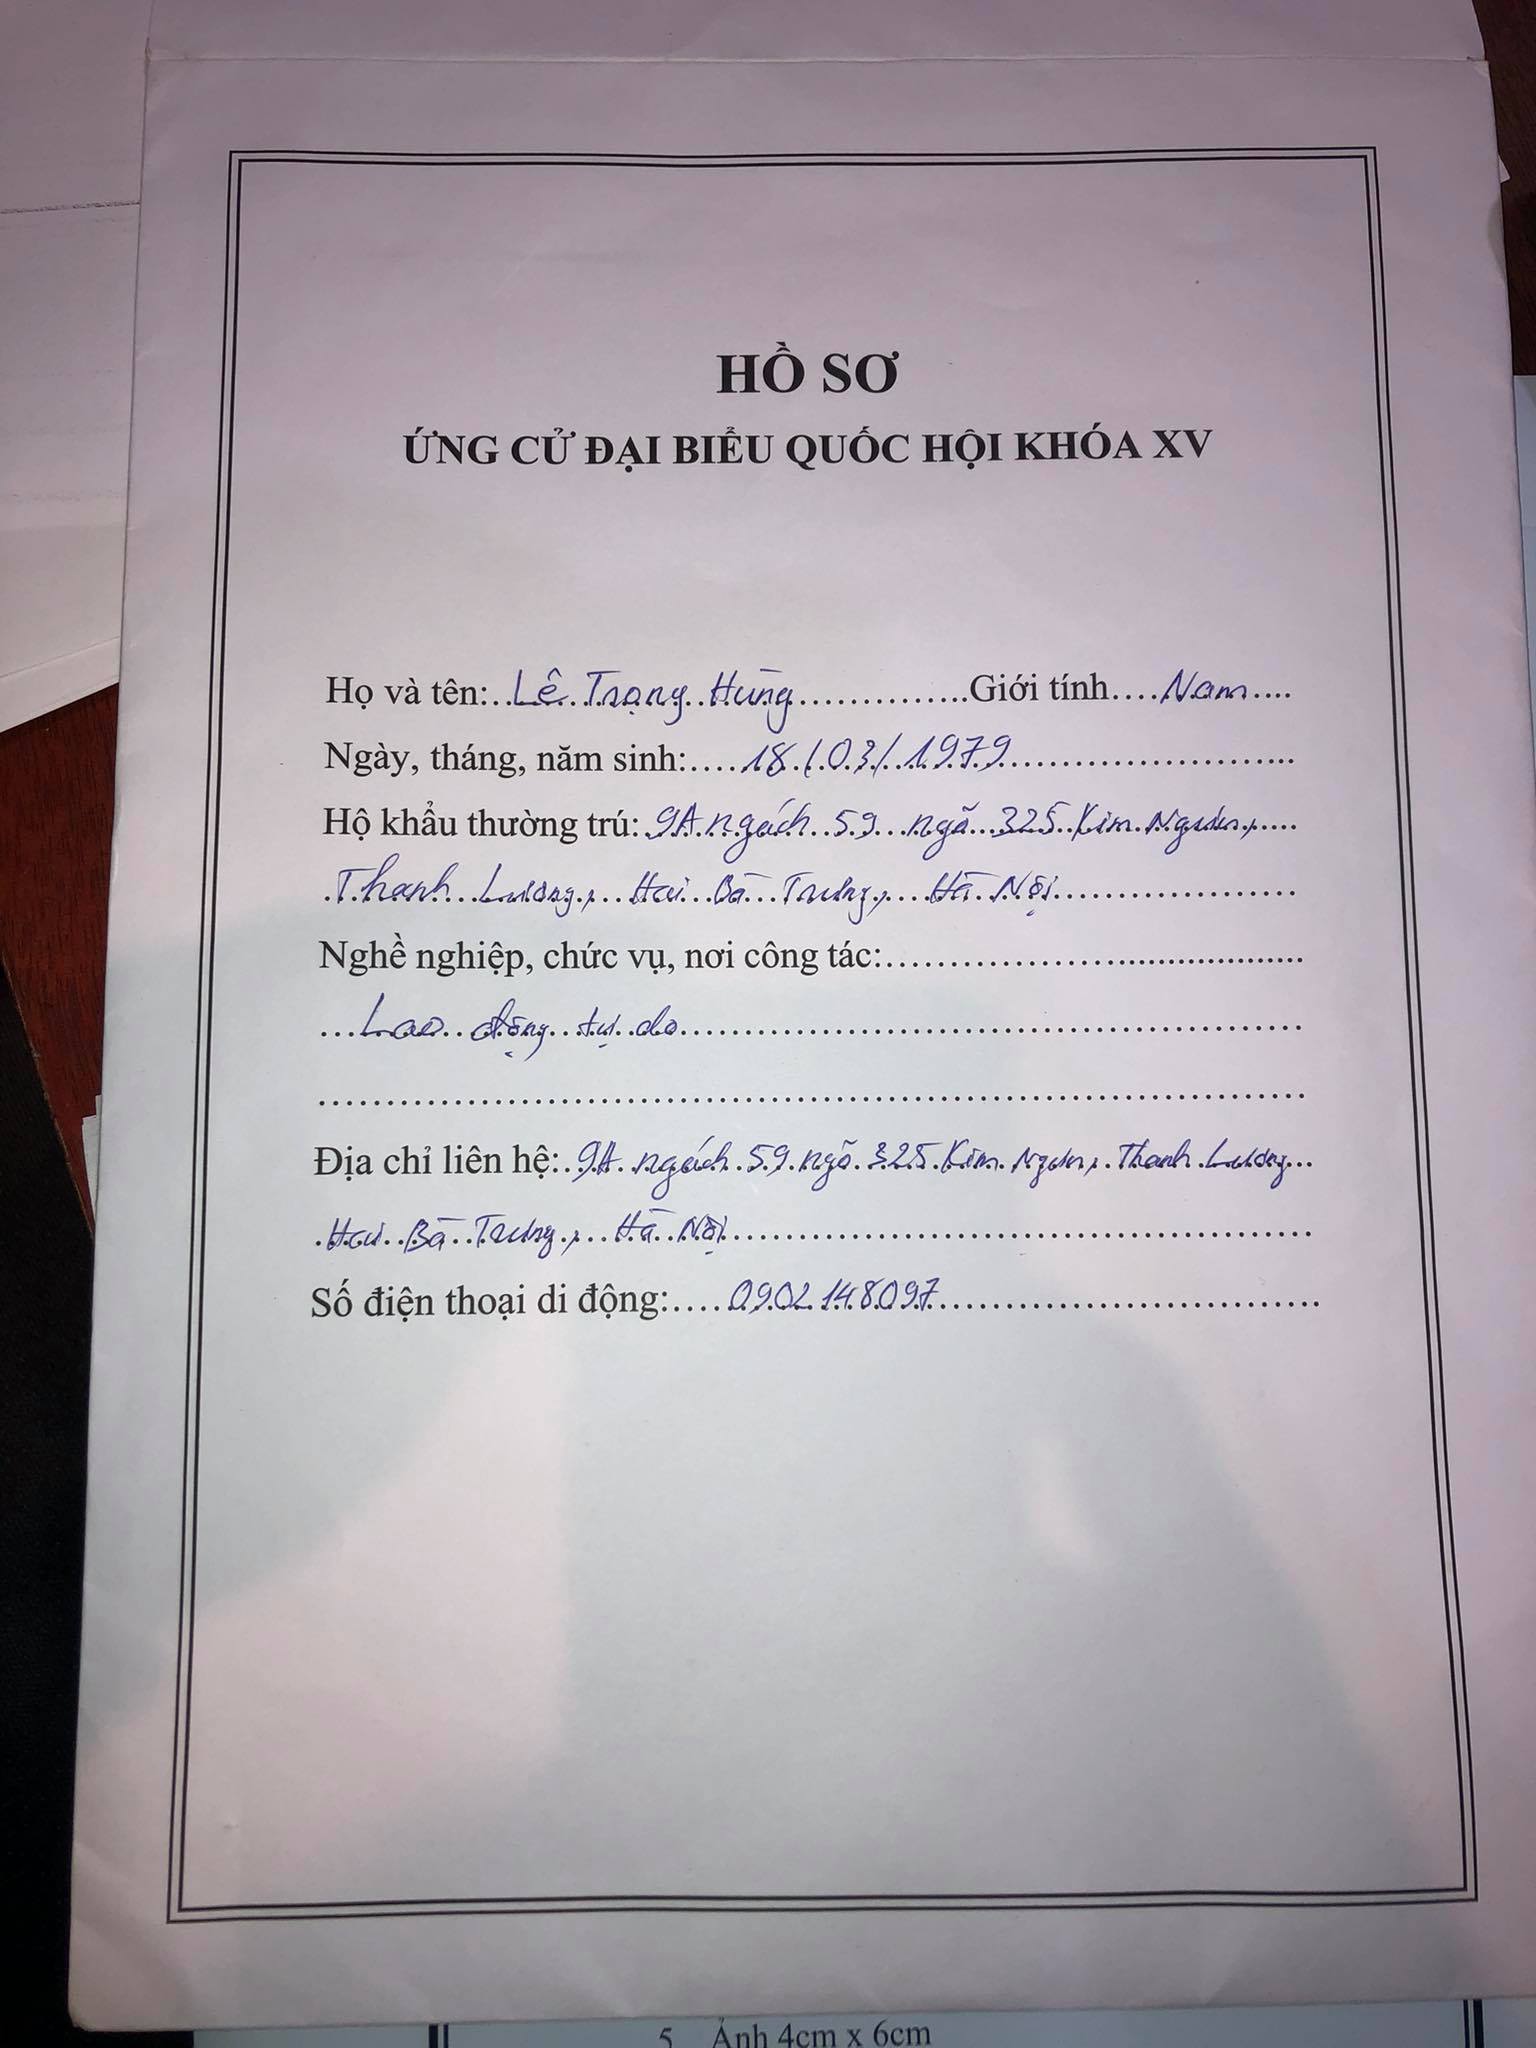 HỒ SƠ
ỨNG CỬ ĐẠI BIỂU QUỐC HỘI KHÓA XV
Họ và tên:...Lê Trọng Hùng...............Giới tính....Nam....
Ngày, tháng, năm sinh:....18/03/1979........................
Hộ khẩu thường trú: 9A ngách 59 ngõ 325 Kim Ngưu,.....
Thanh Lương, Hai Bà Trưng, Hà Nội.....................
Nghề nghiệp, chức vụ, nơi công tác:........................................
...Lao động tự do..........................................................
..........................................................................
Địa chỉ liên hệ: 9A ngách 59 ngõ 325 Kim Ngưu, Thanh Lương...
Hai Bà Trưng, Hà Nội..................................................
Số điện thoại di động:....0902148097..................................
5 Ảnh 4cm x 6cm